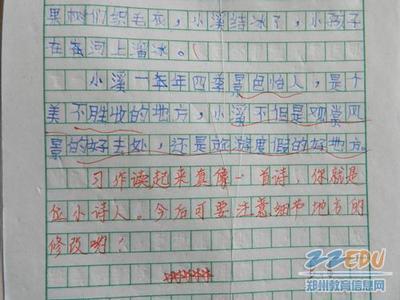 果树们织毛衣，小溪结冰了，小孩子
在在河上溜冰。
小溪一年年四季景色怡人，是个
美不胜收的地方，小溪不但是观赏风
景的好去处，还是旅游度假的好地方。
习作读起来真像一首诗，你就是
位小诗人。今后可要注意细节地方的
修改哟！
22EDU
郑州教育信息网